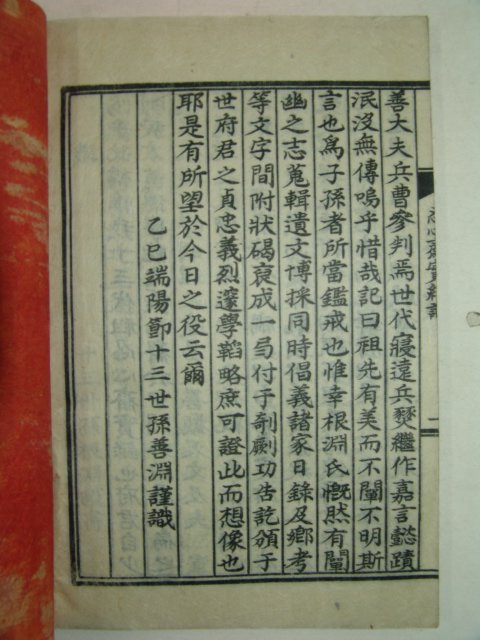 善大夫兵曹參判焉世代寢遠兵燹繼作嘉言懿蹟
泯沒無傳嗚乎惜哉記曰祖先有美而不闡不明斯
言也爲子孫者所當鑑戒也惟幸根淵氏慨然有闡
幽之志蒐輯遺文博採同時倡義諸家日錄及鄕考
等文字間附狀碣裒成一弓付于剞劂功告訖頒于
世府君之貞忠義烈邃學韜略庶可證此而想像也
耶是有所望於今日之役云爾
乙巳端陽節十三世孫善淵謹識